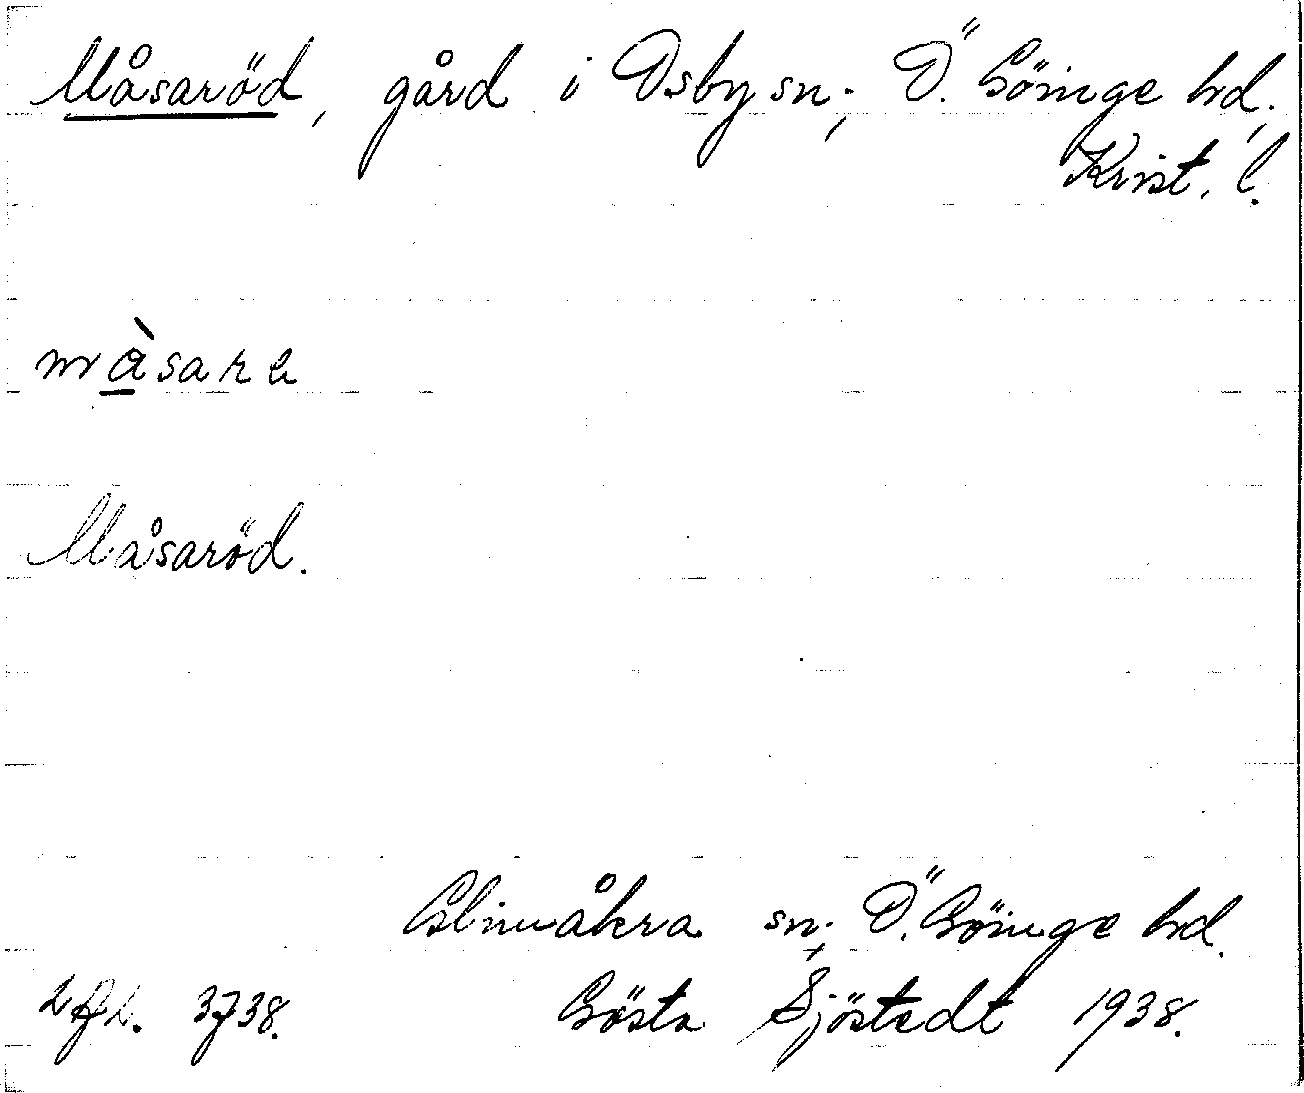 Måsaröd, gård i Osby sn; Ö. Göinge hd,
Krist. l.
màsara
Måsaröd.
Glimåkra sn; Ö. Göinge hd.
3738. Gösta Sjöstedt 1938.